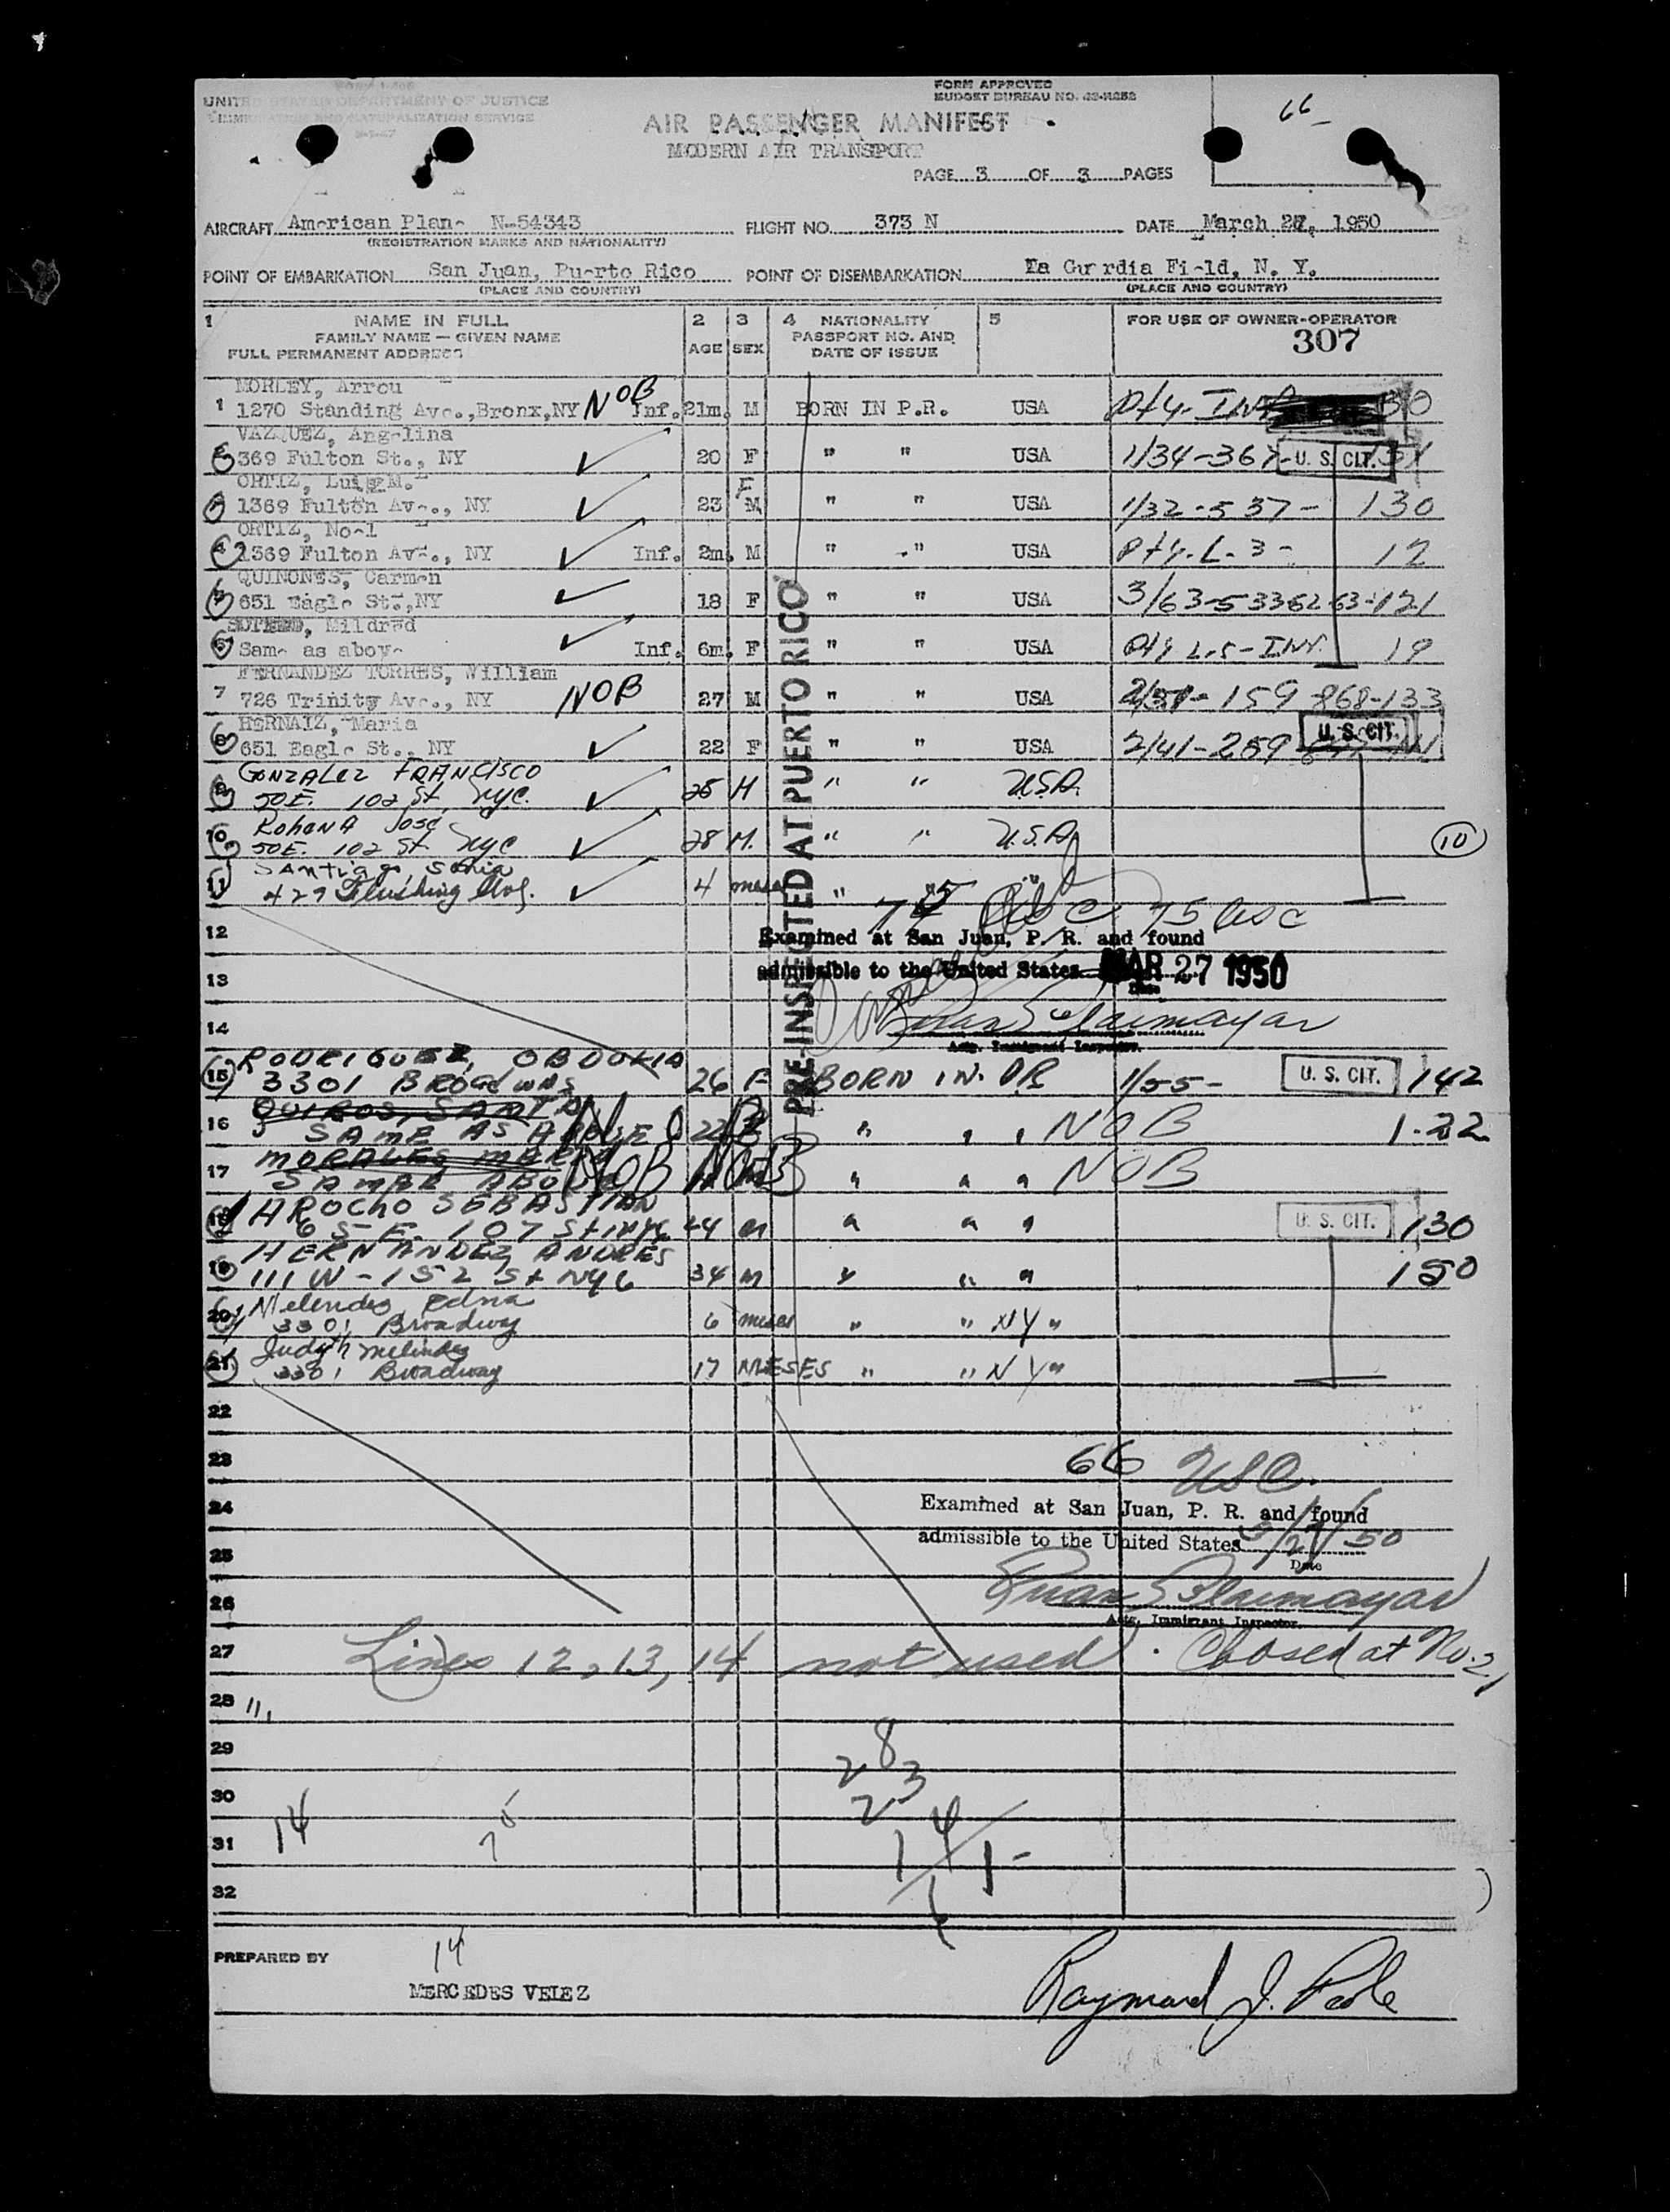 FORM I-466
UNITED STATES DEPARTMENT OF JUSTICE
IMMIGRATION AND NATURALIZATION SERVICE
FORM APPROVED
BUDGET BUREAU NO.
66
AIR PASSENGER MANIFEST
MODERN AIR TRANSPORT
PAGE 3 OF 3 PAGES
AIRCRAFT American Plane N-54343 FLIGHT NO. 373 N DATE March 27, 1950
(REGISTRATION MARKS AND NATIONALITY)
POINT OF EMBARKATION San Juan, Puerto Rico POINT OF DISEMBARKATION La Guardia Field, N. Y.
(PLACE AND COUNTRY) (PLACE AND COUNTRY)
1 NAME IN FULL 2 3 4 NATIONALITY 5 FOR USE OF OWNER-OPERATOR
FAMILY NAME — GIVEN NAME AGE SEX PASSPORT NO. AND 307
FULL PERMANENT ADDRESS DATE OF ISSUE
MORLEY, Arrou
1 1270 Standing Ave.,Bronx,NY NOB Inf. 21m. M BORN IN P.R. USA
VAZQUEZ, Angelina
2 369 Fulton St., NY 20 F " " USA 1/34-367- U. S. CIT.
ORTIZ, Luis M. F
3 1369 Fulton Ave., NY 23 M " " USA 1/32-537- 130
ORTIZ, Noel
4 1369 Fulton Ave., NY Inf. 2m. M " " USA 12
QUINONES, Carmen
5 651 Eagle St.,NY 18 F " " USA 121
Mildred
6 Same as above Inf. 6m. F " " USA 19
FERNANDEZ TORRES, William
7 726 Trinity Ave., NY NOB 27 M " " USA 159-868-133
HERNAIZ, Maria
8 651 Eagle St., NY 22 F " " USA 2/41-259 U. S. CIT.
GONZALEZ FRANCISCO
9 50 E. 102 St. NYC. 25 M " " U.S.A.
Rohena José
10 50 E. 102 St. NYC 28 M. " " U.S.A. 10
Santiago, Sonia
11 429 Flushing Avg. 4 meses " " "
PRE-INSPECTED AT PUERTO RICO
75 USC
12 Examined at San Juan, P. R. and found
13 admissible to the United States MAR 27 1950
Date
14
Actg. Immigrant Inspector.
RODRIGUEZ, OBDULIA
15 3301 26 F BORN IN. PR 1/55- U. S. CIT. 142
QUIROS, SANTA
16 SAME AS ABOVE 22 " " " NOB 1-22
MORALES MARIA
17 SAME ABOVE NOB NOB " " " NOB
AROCHO SEBASTIAN
18 65 E. 107 St NYC 44 M " " " U. S. CIT. 130
HERNANDEZ ANDRES
19 111 W-152 St NYC 34 M " " " 150
Melendez Edna
20 3301 Broadway 6 meses " " NY "
Judyth Melendez
21 3301 Broadway 17 MESES " " NY "
22
23 66 USC.
24 Examined at San Juan, P. R. and found
25 admissible to the United States 3/27/50
Date
26
Actg. Immigrant Inspector.
27 Lines 12, 13, 14 not used. Closed at No. 21
28 11,
29 28
30 23
31 14 14 1-
32
PREPARED BY 14
MERCEDES VELEZ
Raymond J.